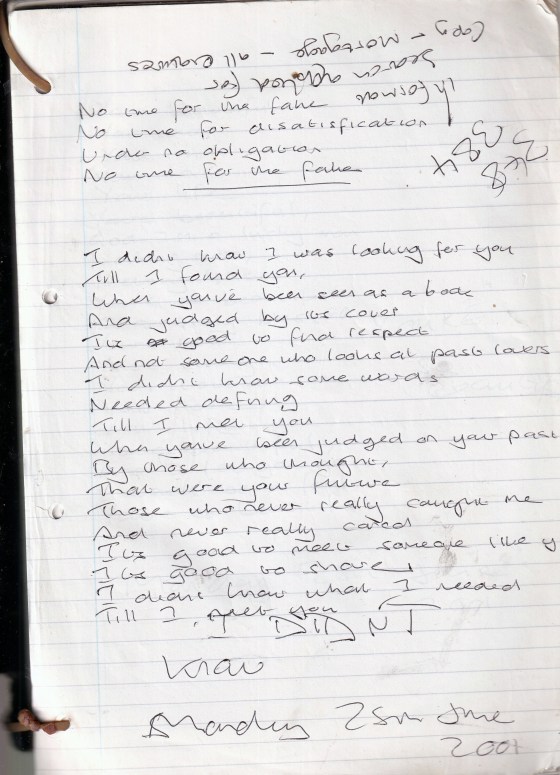 Copy - Mortgage - all
Search for
In format
No time for the fake
No time for disatisfication
Under no obligation
No time for the fake
I didnt know I was looking for you
Till I found you,
When youve been seen as a book
And judged by its cover
Its good to find respect
And not someone who looks at past lovers
I didnt know some words
Needed defining
Till I met you
When youve been judged on your past
By those who thought,
That were your future
Those who never really caught me
And never really cared
Its good to meet someone like y
Its good to share
I didnt know what I needed
Till I met you
I DIDNT
Know
Monday 25th June
2001